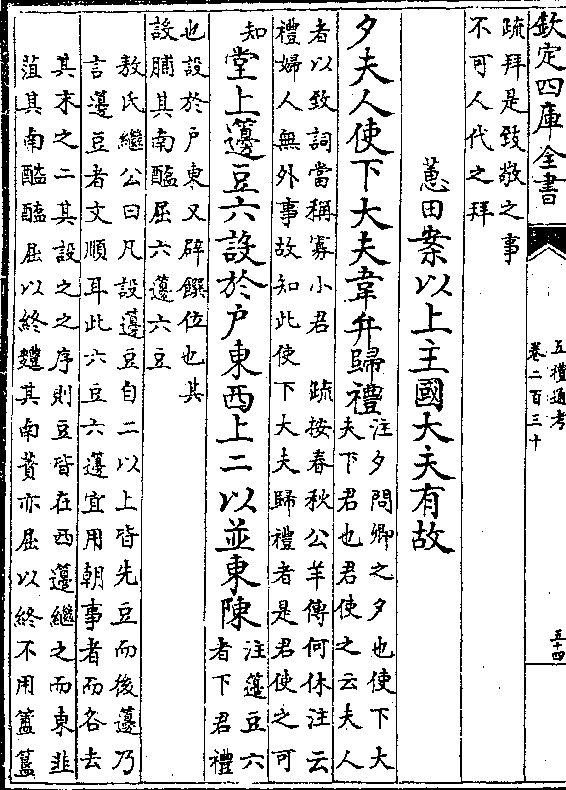 欽定四庫全書
五禮通考
卷二百三十
五十四
疏拜是致敬之事
不可人代之拜
蕙田案以上主國大夫有故
夕夫人使下大夫韋弁歸禮
注夕問卿之夕也使下大
夫下君也君使之云夫人
者以致詞當稱寡小君 疏按春秋公羊傳何休注云
禮婦人無外事故知此使下大夫歸禮者是君使之可
知
堂上籩豆六設於户東西上二以並東陳
注籩豆六
者下君禮
也設於户東又辟饌位也其
設脯其南醢屈六籩六豆
敖氏繼公曰凡設籩豆自二以上皆先豆而後籩乃
言籩豆者文順耳此六豆六籩宜用朝事者而各去
其末之二其設之之序則豆皆在西籩繼之而東韭
菹其南醓醢屈以終麷其南蕡亦屈以終不用簠簋